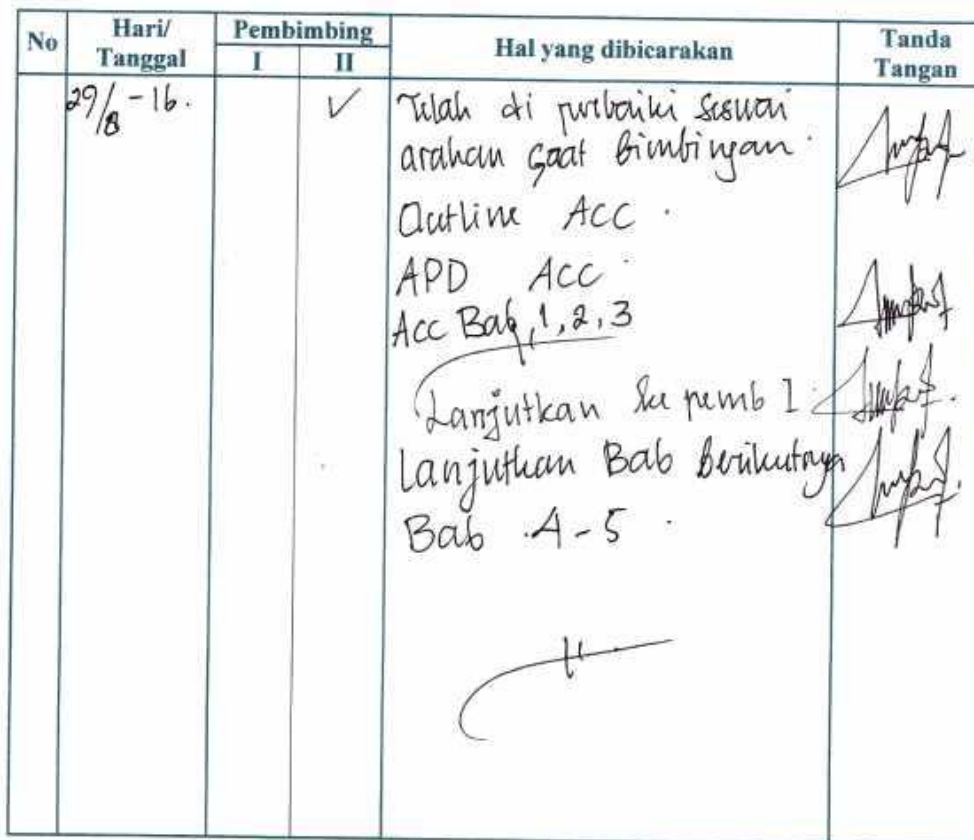 No Hari/ Pembimbing Hal yang dibicarakan Tanda
Tanggal I II Tangan
29/8 - 16. ✓ Telah di perbaiki sesuai
arahan saat bimbingan.
Outline ACC.
APD ACC.
Acc Bab, 1, 2, 3
Lanjutkan ke pemb I.
Lanjutkan Bab berikutnya
Bab 4 - 5.